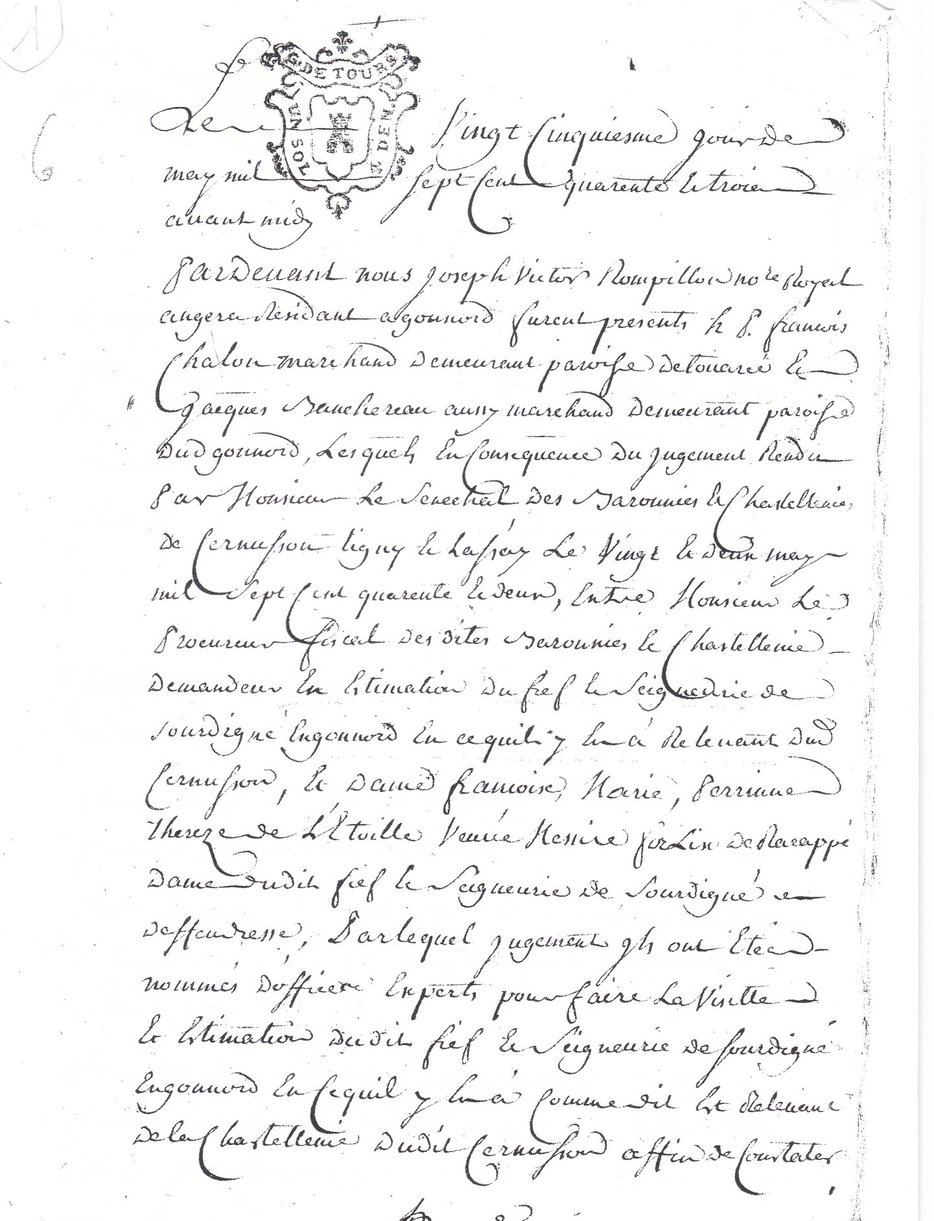 1
6
G. DE TOURS
UN SOL 4 DEN.
Le Vingt Cinquiesme jour de
may mil sept Cent quarente et trois
avant midy
Pardevant nous Joseph Victor Rompillon no.re Royal
angers Residant a gonnord furent presents le S. francois
Chalon marchand demeurant paroisse de touarcé et
Jacques Banchereau aussy marchand demeurant paroisse
dud gonnord, Lesquels En Consequence du jugement Rendu
par Monsieur Le Senechal des Baronnies et Chastellenies
de Cernusson tigny et Lassay Le Vingt et deux may
mil sept Cent quarente et deux, Entre Monsieur Le
Procureur fiscal desdites Baronnies et Chastellenie
Demandeur En Estimation du fief et Seigneurie de
sourdigné Engonnord En cequil y En á Relevant dud
Cernusson, Et Dame francoise, Marie, Perrinne
thereze de L'Etoille Veuve Messire de Racappé
Dame dudit fief et Seigneurie de Sourdigné
deffendresse, Parlequel jugement ils ont Eté
nommés d'office Experts pour faire La Visitte
Et Estimation dudit fief et Seigneurie de sourdigné
Engonnord En Cequil y En á Comme dit Est Relevant
de la Chastellenie dudit Cernusson affin de Constater